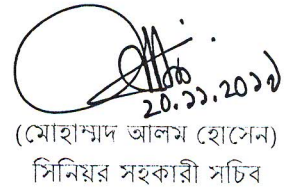 ২০.১১.২০১৭
(মোহাম্মদ আলম হোসেন)
সিনিয়র সহকারী সচিব